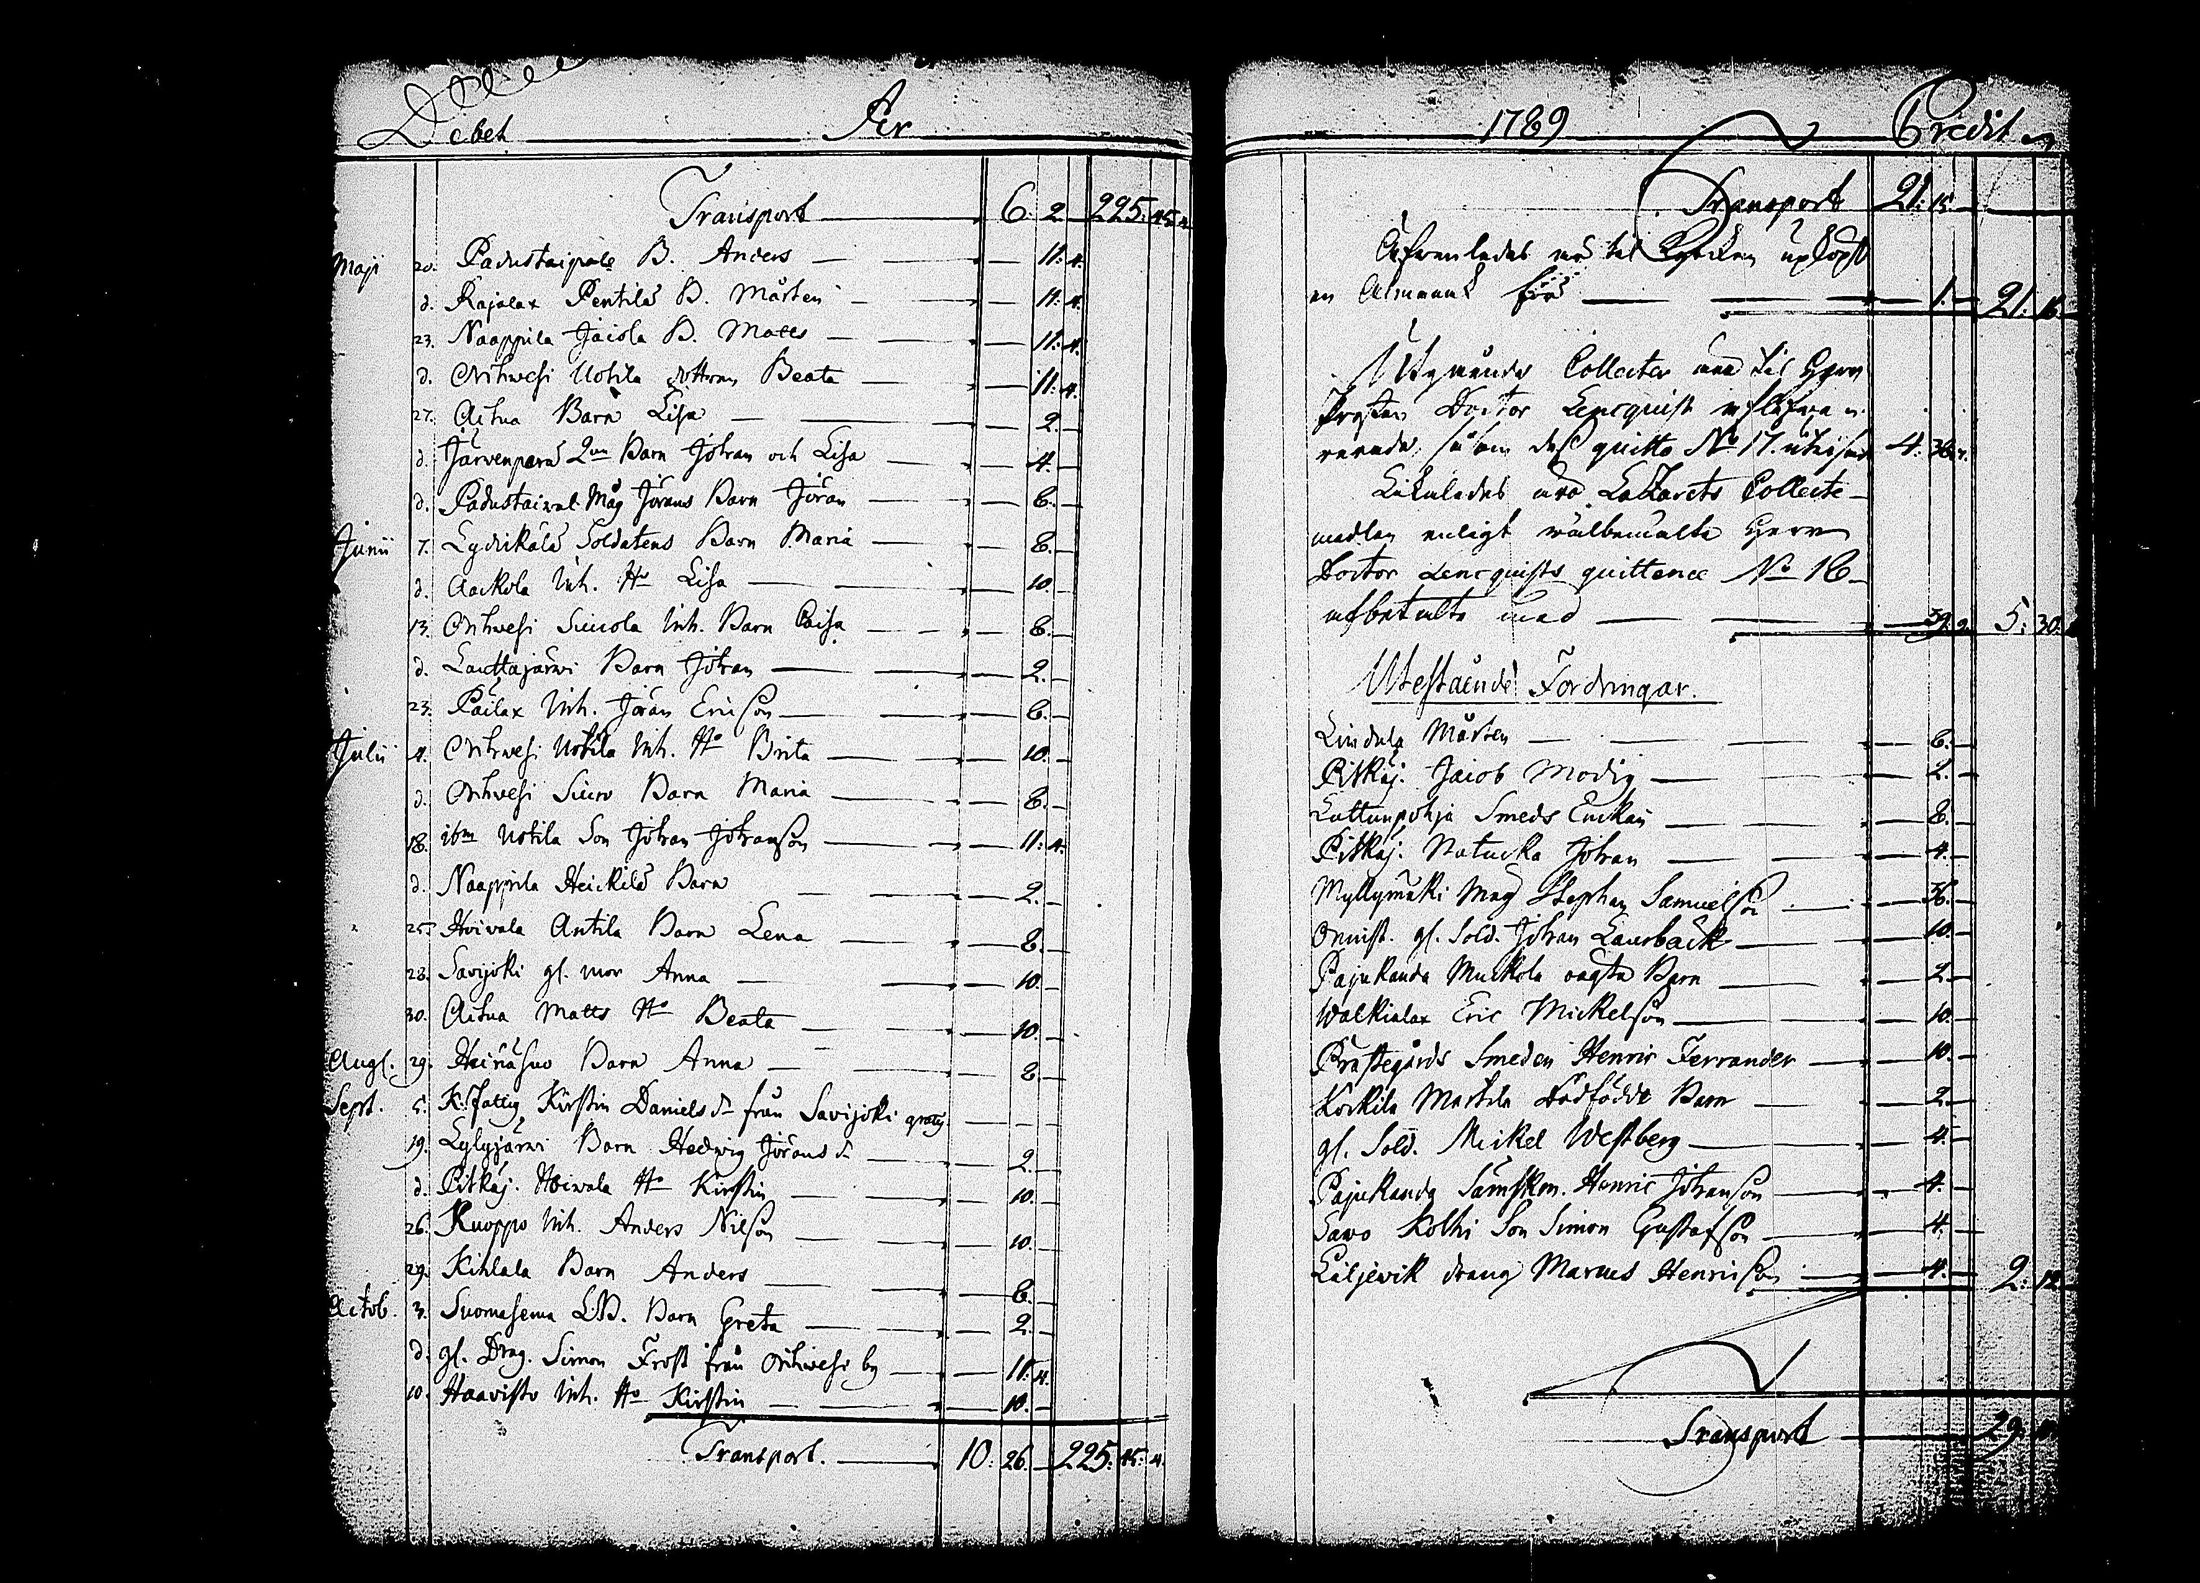 Debet Per
Transport 6. 2. 225. 45. 4.
Maji 20. Padustaipale B. Anders 11. 4.
d. Rajalax Pentilä B. Mårten 11. 4.
23. Naappila Jaiola B. Matts 11. 4.
d. Orihwesi Uotila dottren Beata 11. 4.
27. Aitua Barn Lisa 2.
d. Järvenpärä 2ne Barn Johan och Lisa 4.
d. Padustaival Måg Jörans Barn Jöran 6.
Junii 7. Lydikälä Soldatens Barn Maria 8.
d. Aackola Inh. Ho Lisa 10.
13. Orihwesi Simola Inh. Barn Caisa 8.
d. Lauttajärwi Barn Johan 2.
23. Päilax Inh. Jöran Ericson 6.
Julii 4. Orihwesi Uotila Inh. Ho Brita 10.
d. Orihvesi Siuro Barn Maria 8.
18. ibm Uotila Son Johan Johanson 11. 4.
d. Naappila Heickilä Barn 2.
25. Hoivala Antila Barn Lena 8.
28. Savijoki gl. mor Anna 10.
30. Aitua Matts Ho Beata 10.
Augl. 29. Heinäsuo Barn Anna 8.
Sept. 5. K. fattig Kirstin Daniels dr från Savijoki gratis
19. Lylyjärwi Barn Hedwig Jörans dr 2.
d. Pitkäj. Hoiwala Ho Kirstin 10.
26. Kuoppo Inh. Anders Nilson 10.
29. Kihlala Barn Anders 6.
Octob. 3. Suomasema Barn Greta 2.
d. gl. Drag. Simon Frost från Orihwesi by 11. 4.
10. Haavisto Inh. Ho Kirstin 10.
Transport. 10. 26. 225. 45. 4.
1789 Credit
Transport 21. 15.
Äfwenledes är til Kyrckan upköpt
en Almanack för 1. 21. 16.
Utgående Collecter äro til Herr
Prosten Doctor Lencquist
såsom dess quitto No 17. utwisar 4. 38.
Likaledes äro Lazarets Collecte
medlen enligt wälbemälte Herr
Doctor Lencquists quittence No 18
afbetalte med 39. 2. 5. 30.
Utestående Fordringar.
Lindula Mårten 6.
Pitkäj. Jacob Modig 2.
Lattunpohja Smeds Enckan 8.
Pitkäj. Natucka Johan 4.
Myllymäki Mag Stephan Samuelson 36.
Onnist. gl. Sold. Johan Laurbäck 10.
Pajukanda Muckola oägta Barn 2.
Walkialax Eric Mickelson 10.
Prästegårds Smeden Henric Ferrander 10.
Kockila Martila dödfödde Barn 2.
gl. Sold. Mickel Westberg 4.
Pajukanda Henric Johanson 4.
Savo Kolhi Son Simon Gustafson 4.
Liljewik dreng Marcus Henricson 4. 2. 12.
Transport 29.